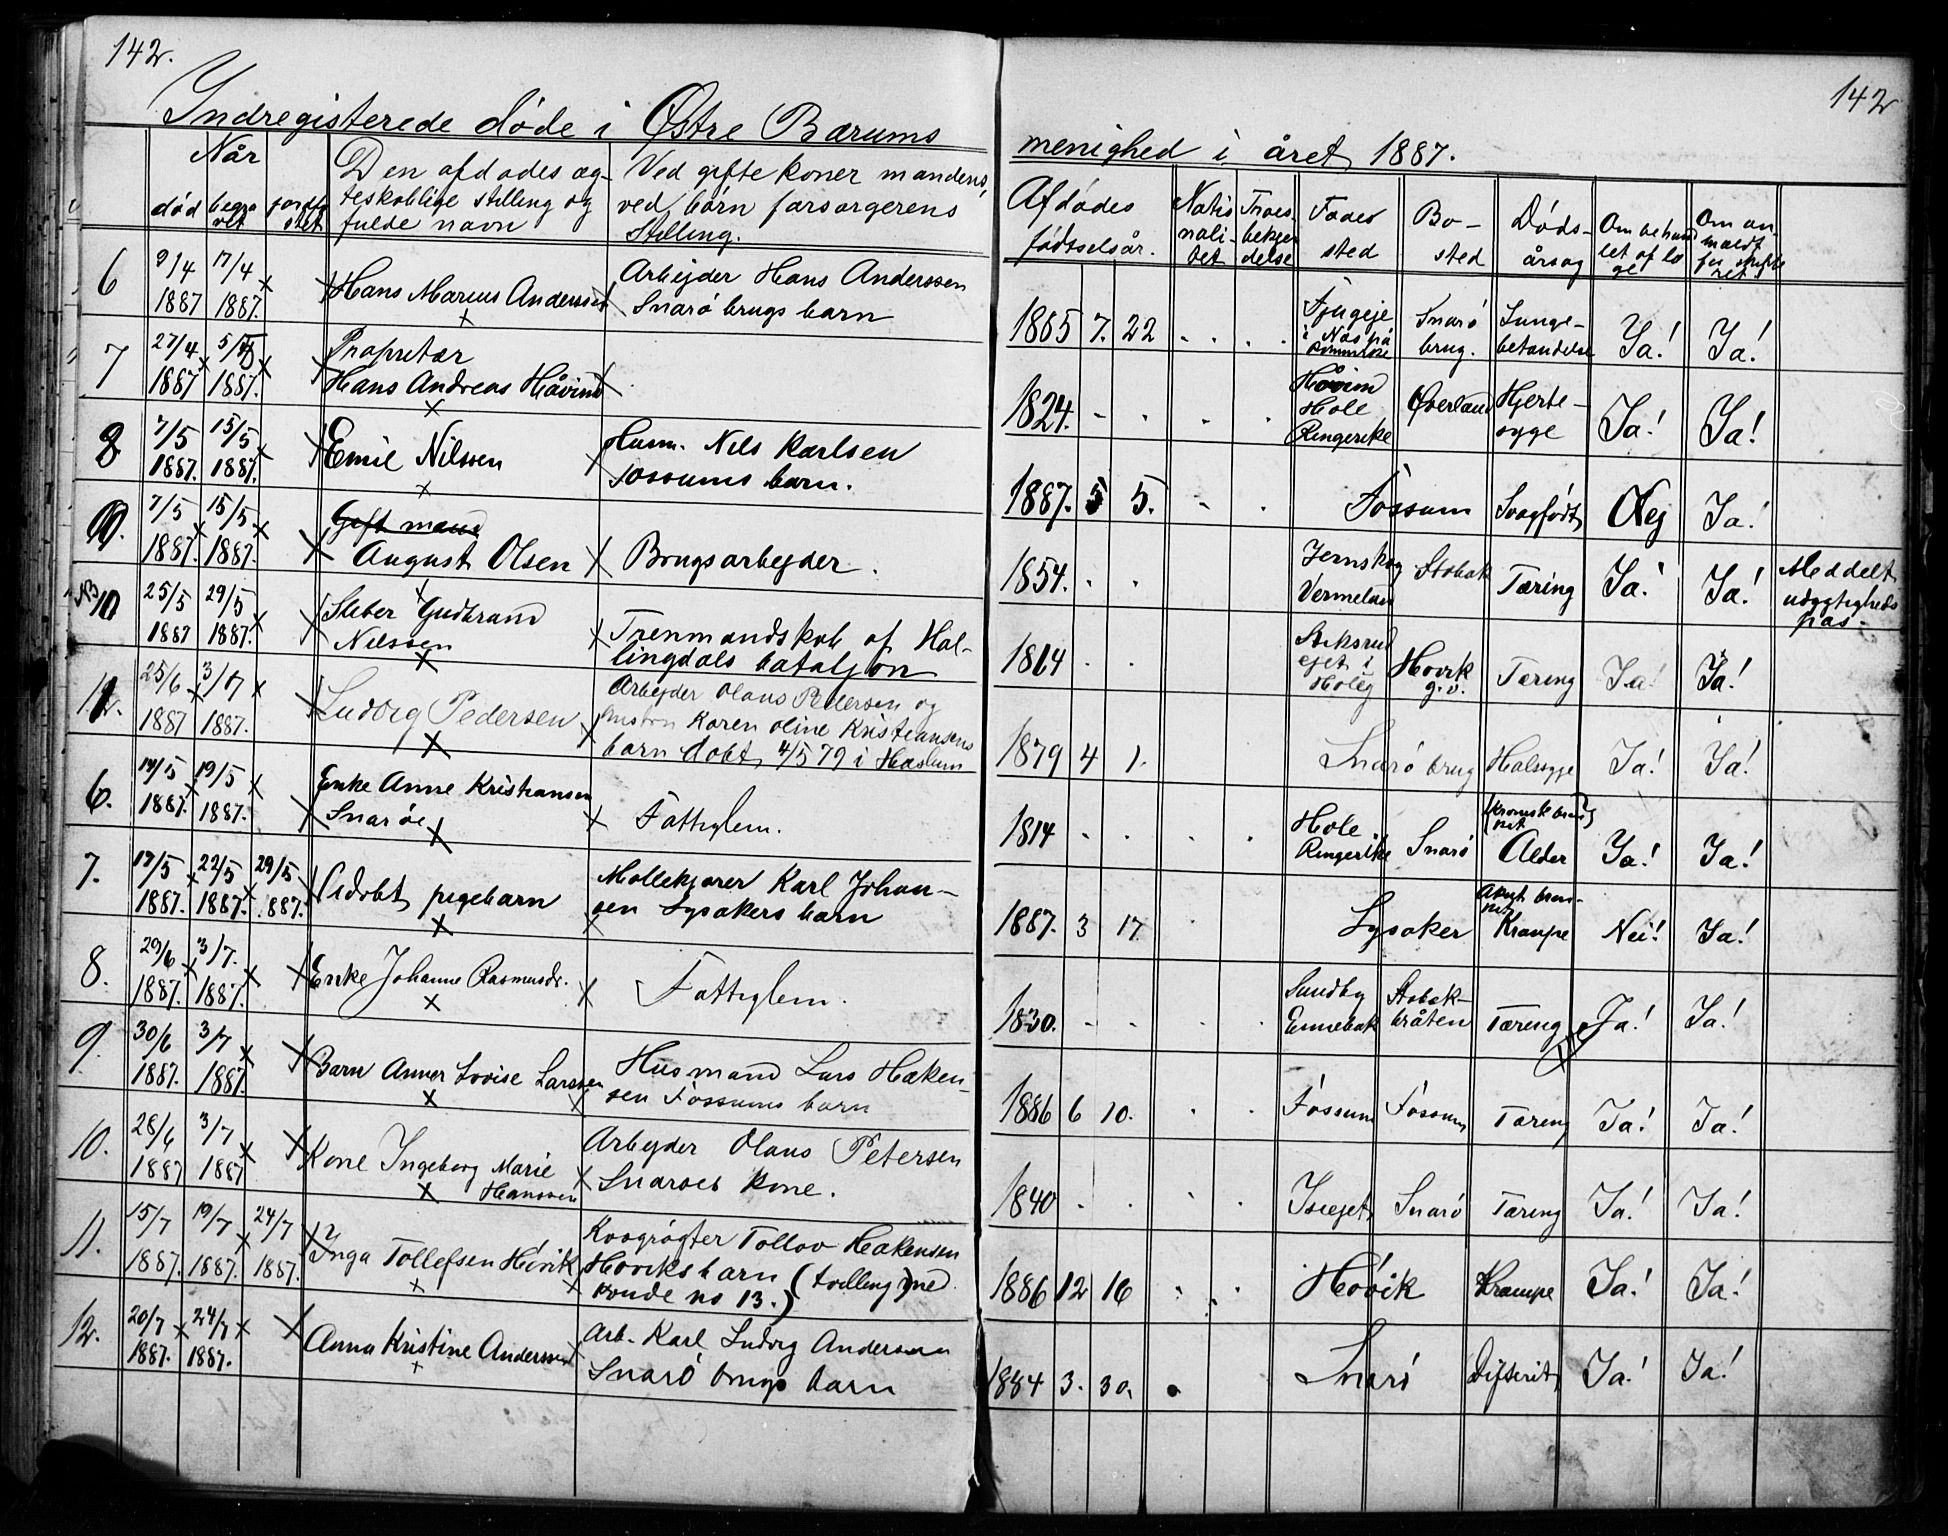 142.
142
Indregisterede døde i Østre Bærums
menighed i året 1887.
Når
død begravet jordfæstet
Den afdødes ægteskablige stilling og
fulde navn
Ved gifte koner mandens,
ved børn forsørgerens
Stilling.
Afdødes
fødselsår.
Natio
nali-
tet
Troes-
bekjen
delse
Fødested
Bo-
sted
Døds-
årsag
Om behand
let af læ
ge
Om an-
mældt
for skifte
ret
6 9/4 17/4 Arbejder Hans Anderssen
1887 1887. Hans Marius Anderssen Snarø brugs barn
1865 7. 22 i Næs på Romerike Snarø brug. Lunge-betændelse Ja! Ja!
7 27/4 5/5 Proprietær
1887 1887. Hans Andreas Høvind
1824. Høvind Hole Ringerike Øverland Hjerte-syge Ja! Ja!
8 7/5 15/5 Emil Nilssen Husm. Nils Karlsen
1887. 1887. Fossums barn.
1887. 5 5. Fossum Svagfødt Nej Ja!
9. 7/5 15/5 Gift mand
1887. 1887. August Olsen Brugsarbejder.
1854. Jernskog Vermeland Stabæk Tæring Ja! Ja! Meddelt udygtigheds pas.
10 25/5 29/5 Gudbrand
1887 1887. Nilssen Trenmandskab af Hal-
lingdals bataljon
1864 Høvik g.v. Tæring Ja! Ja!
25/6 3/7 Ludvig Pedersen Arbejder Olaus Pedersen og
1887 1887. hustru Karen Oline Kristiansens
barn døbt 4/5 79 i Haslum
1879 4 1. Snarø brug Halsyge Ja! Ja!
6. 19/5 Enke Anne Kristiansen
1887. 1887. Snarøe Fattiglem.
1814 Hole Ringerike Snarø Alder Ja! Ja!
7. 17/5 22/5 29/5 Udøbt pigebarn Møllekjører Karl Johan-
1887. 1887. 1887. sen Lysakers barn
1887. 3 17. Lysaker Krampe Nei! Ja!
8. 29/6 3/7. Enke Johanne Rasmusdr. Fattiglem.
1887. 1887.
1830. Sundby Ennebak Stabæk-bråten Tæring Ja! Ja!
9. 30/6 3/7 Barn Anner Lovise Larssen Husmand Lars Haken-
1887. 1887. sen Fossums barn
1886 6 10. Fossum Fossum Tæring Ja! Ja!
10. 28/6 3/7 Kone Ingeborg Marie Arbejder Olaus Petersen
1887 1887 Hanssen Snarøes kone.
1840 Snarø Tæring Ja! Ja!
11. 15/7 19/7 24/7 Inga Tollefsen Høvik Tollov Hakensen
1887. 1887. 1887. Høviks barn (tvilling) med
no 13.)
1886 12 16 Høvik Krampe Ja! Ja!
12. 20/7 24/7 Anna Kristine Anderssen Arb. Karl Ludvig Andersen
1887. 1887. Snarø brugs barn
1884 3. 30. Snarø Difterit Ja! Ja!